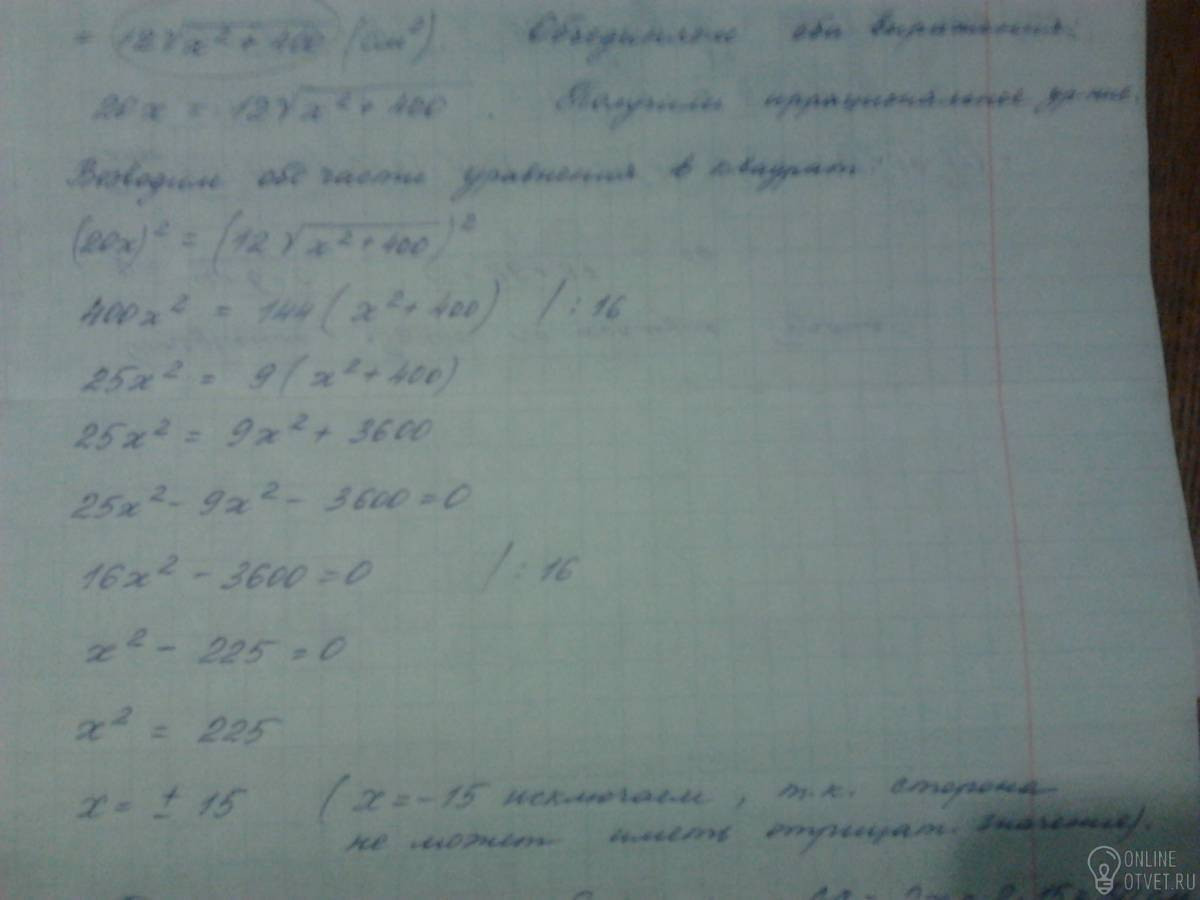 = 12√x² + 400 (см²). Объединяем оба выражения:
20x = 12√x² + 400 . Получили иррациональное ур-ние.
Возводим обе части уравнения в квадрат:
(20x)² = (12√x² + 400)²
400x² = 144(x² + 400) / : 16
25x² = 9(x² + 400)
25x² = 9x² + 3600
25x² - 9x² - 3600 = 0
16x² - 3600 = 0 / : 16
x² - 225 = 0
x² = 225
x = ± 15 (x = -15 исключаем, т.к. сторона
не может иметь отрицат. значение).
ONLINE
OTVET.RU